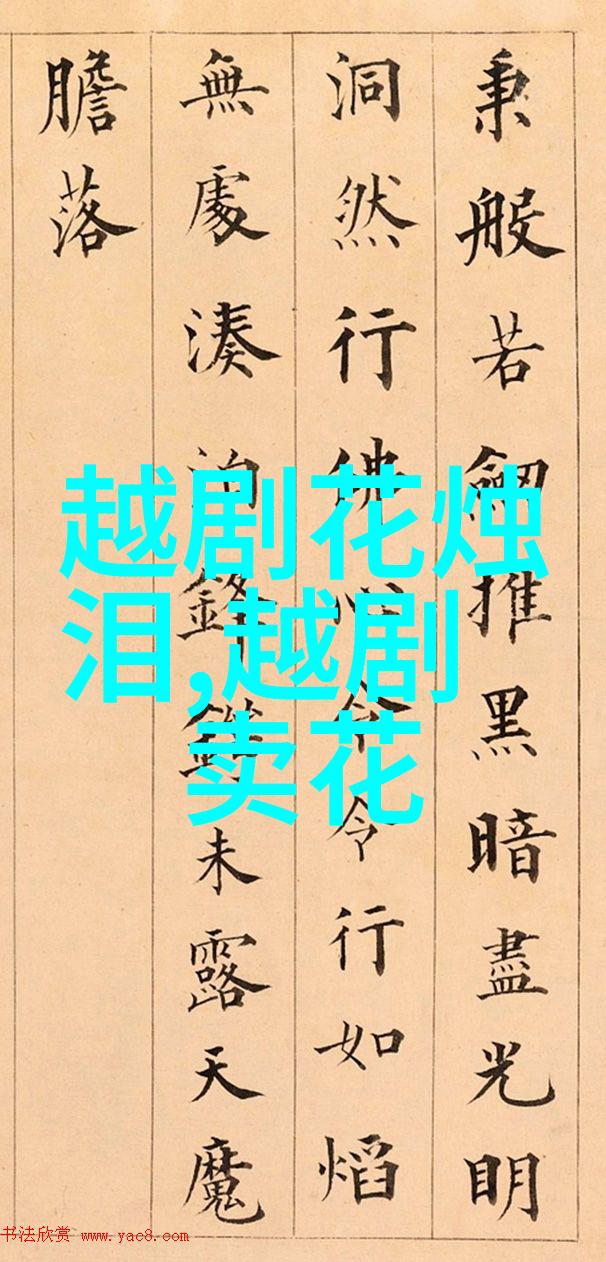 秉般若劒推黑暗盡光明
洞然行佛心令行如熖
無處湊泊鋒未露天魔
膽落
越剧花烛
泪,越剧
卖花
书法欣赏 www.yac8.com